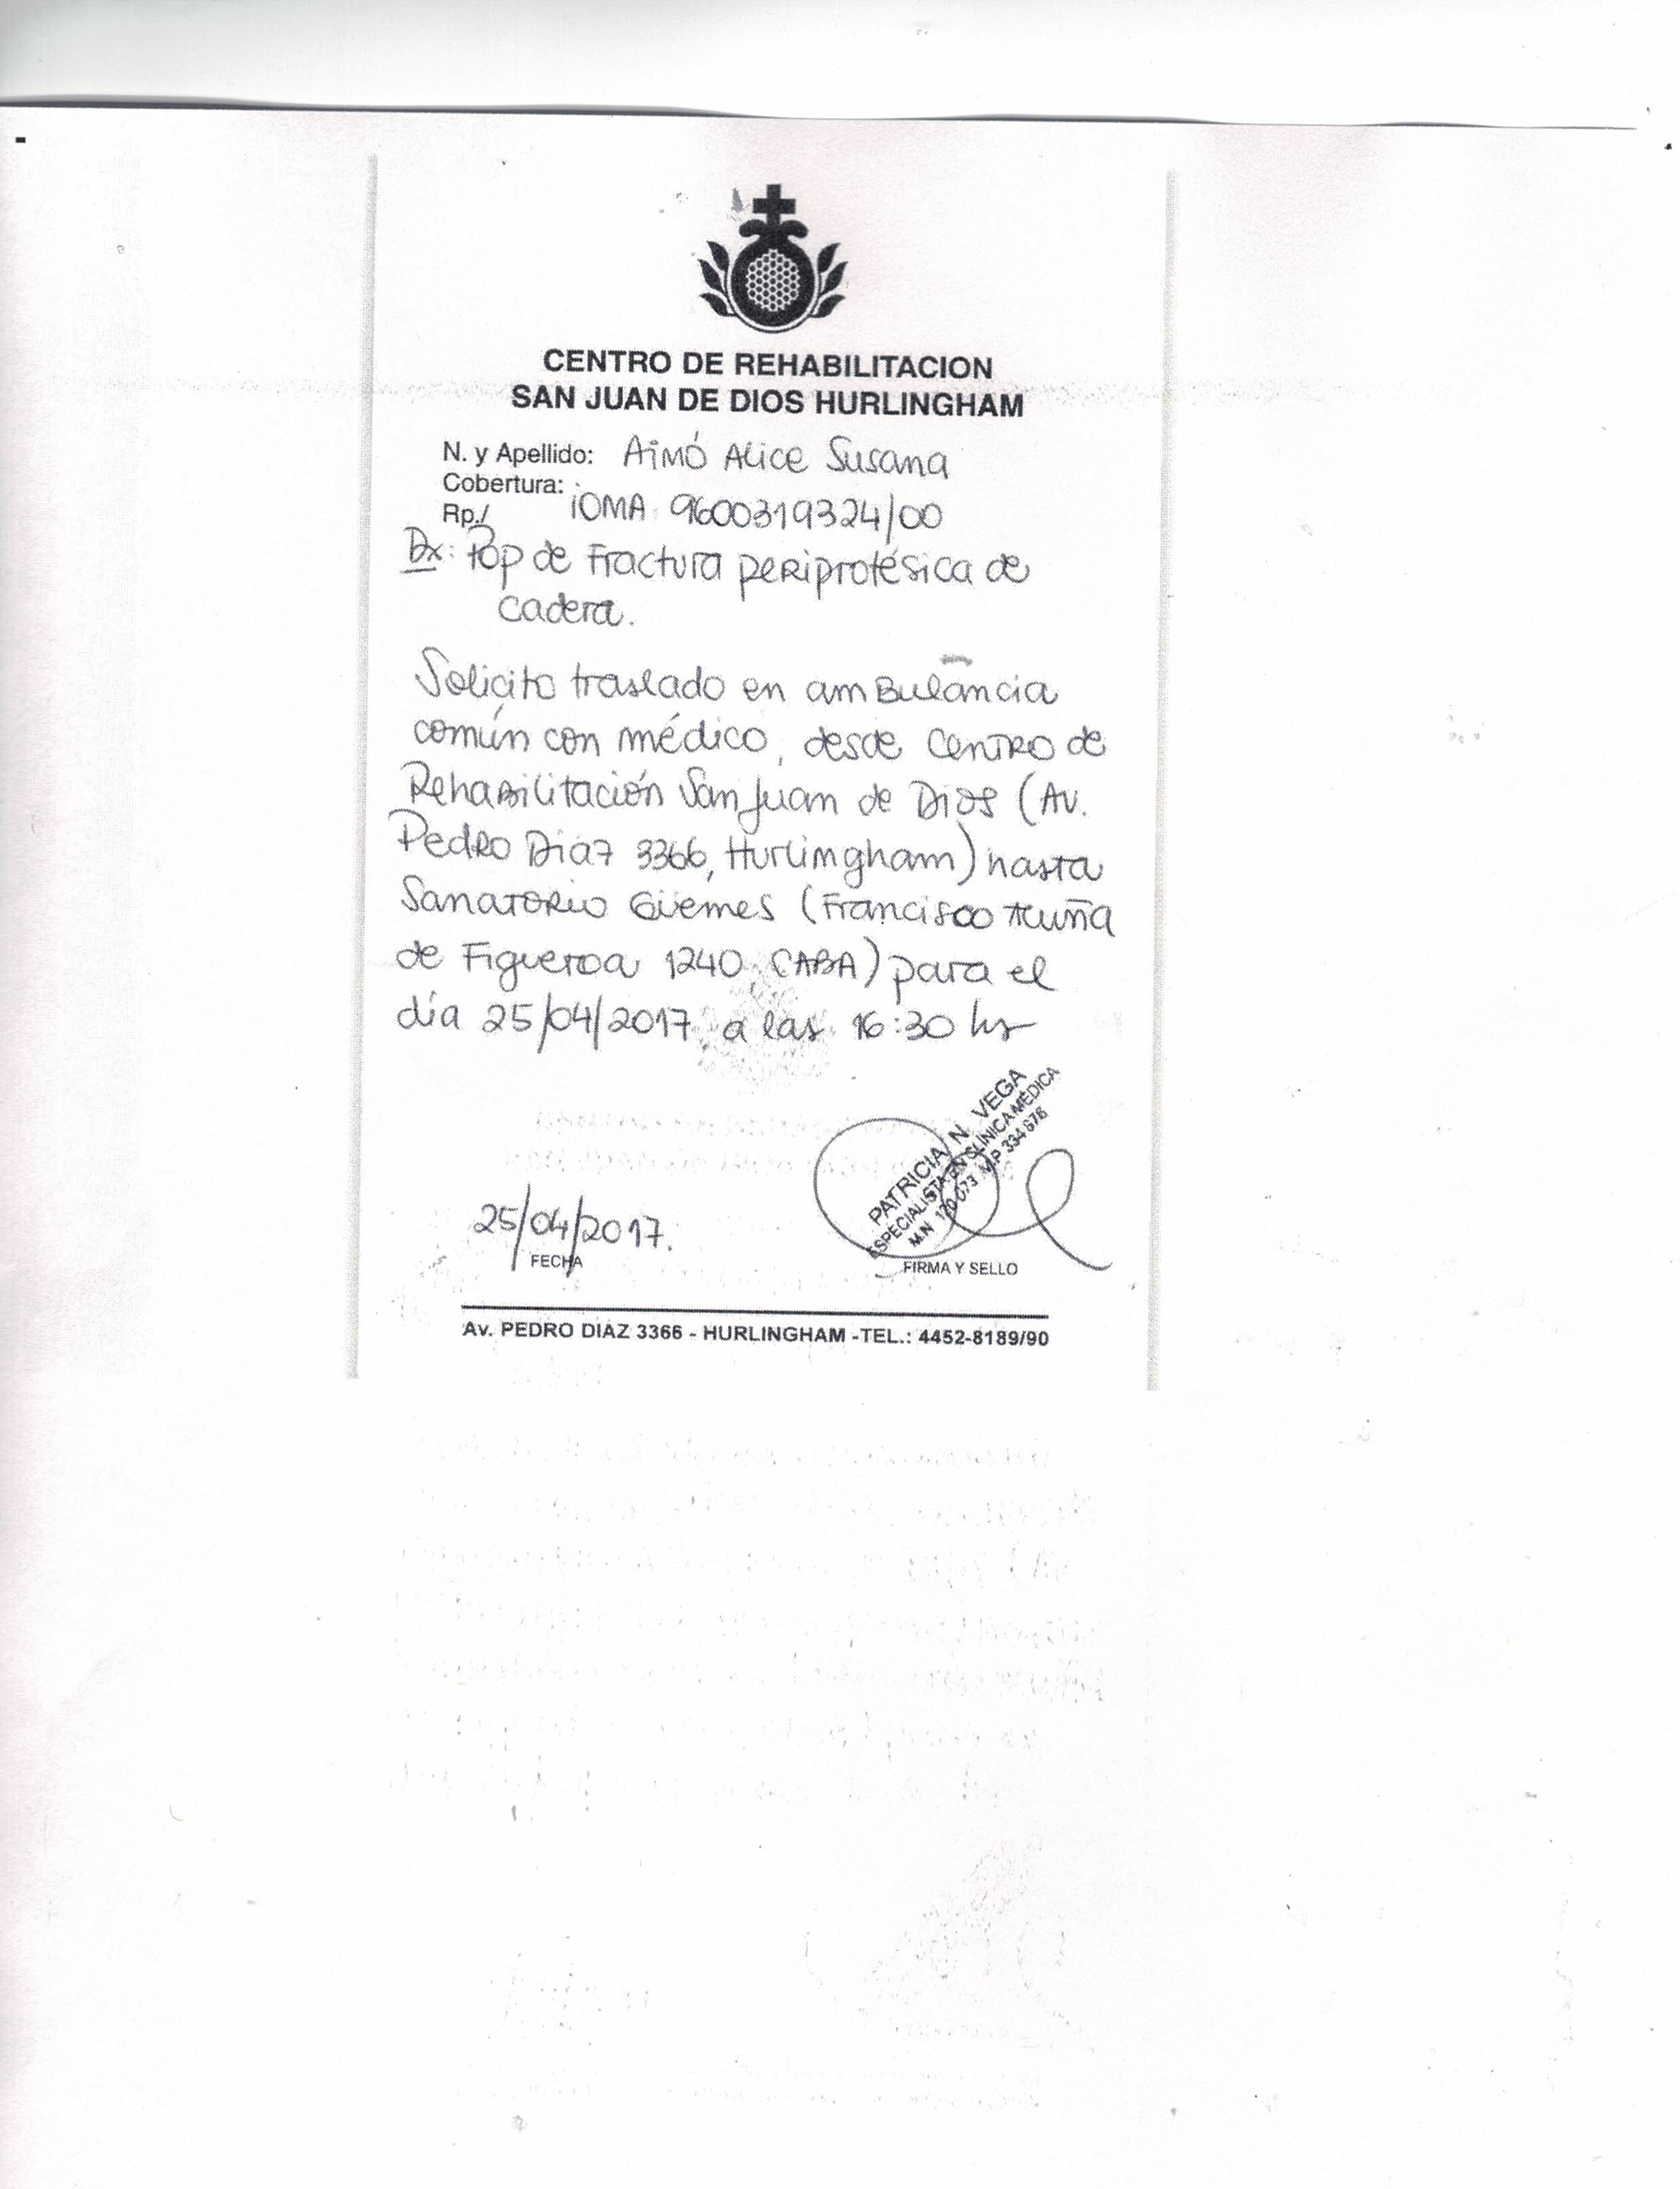 CENTRO DE REHABILITACION
SAN JUAN DE DIOS HURLINGHAM
N. y Apellido: Aimó Alice Susana
Cobertura:
Rp./ IOMA 9600319324/00
Dx: Pop de Fractura periprotésica de
cadera.
Solicito traslado en ambulancia
común con médico, desde Centro de
Rehabilitación San Juan de Dios (Av.
Pedro Diaz 3366, Hurlingham) hasta
Sanatorio Güemes (Francisco Acuña
de Figueroa 1240 CABA) para el
día 25/04/2017 a las 16:30 hs
PATRICIA N. VEGA
ESPECIALISTA EN CLINICA MÉDICA
M.N 170.073 M.P 334 676
25/04/2017.
FECHA
FIRMA Y SELLO
Av. PEDRO DIAZ 3366 - HURLINGHAM -TEL.: 4452-8189/90